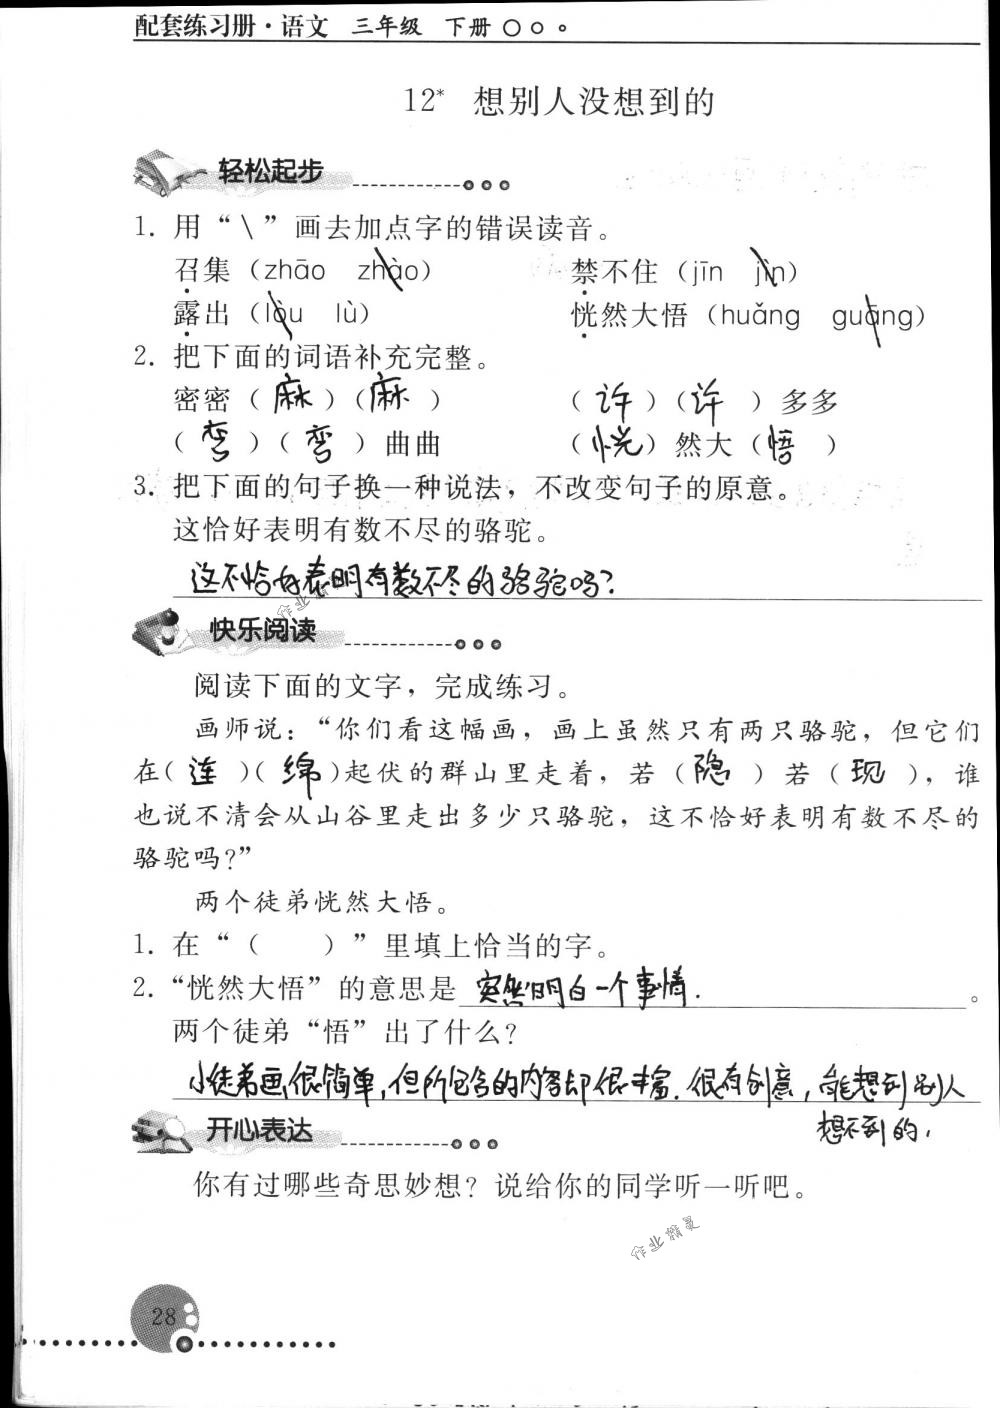 配套练习册·语文 三年级 下册
12* 想别人没想到的
轻松起步
1. 用“\”画去加点字的错误读音。
召集(zhāo zhào) 禁不住(jīn jìn)
露出(lòu lù) 恍然大悟(huǎng guāng)
2. 把下面的词语补充完整。
密密(麻)(麻) (许)(许)多多
(弯)(弯)曲曲 (恍)然大(悟)
3. 把下面的句子换一种说法，不改变句子的原意。
这恰好表明有数不尽的骆驼。
这不恰好表明有数不尽的骆驼吗?
快乐阅读
阅读下面的文字，完成练习。
画师说：“你们看这幅画，画上虽然只有两只骆驼，但它们
在(连)(绵)起伏的群山里走着，若(隐)若(现)，谁
也说不清会从山谷里走出多少只骆驼，这不恰好表明有数不尽的
骆驼吗?”
两个徒弟恍然大悟。
1. 在“( )”里填上恰当的字。
2. “恍然大悟”的意思是 突然明白一个事情. 。
两个徒弟“悟”出了什么?
小徒弟画很简单,但所包含的内容却很丰富.很有创意,能想到别人
想不到的,
开心表达
你有过哪些奇思妙想？说给你的同学听一听吧。
作业精灵
28